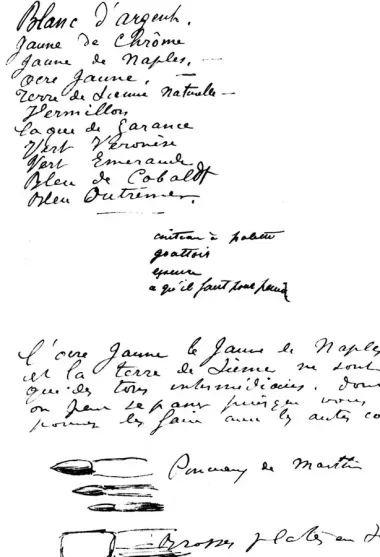 Blanc d'argent.
Jaune de Chrôme
Jaune de Naples. —
ocre Jaune. —
Terre de Sienne Naturelle —
Vermillon
Laque de Garance
Vert Véronèse
Vert Emeraude
Bleu de Cobaldt
Bleu Outremer.
couteau à palette
grattoir
essence
qu'il faut pour peindre
l'ocre Jaune le Jaune de Naples
et la terre de Sienne ne sont
que des tons intermédiaires. dont
on peut se passer puisque vous
pouvez les faire avec les autres co
Pinceaux de Marthe
Brosses plates en